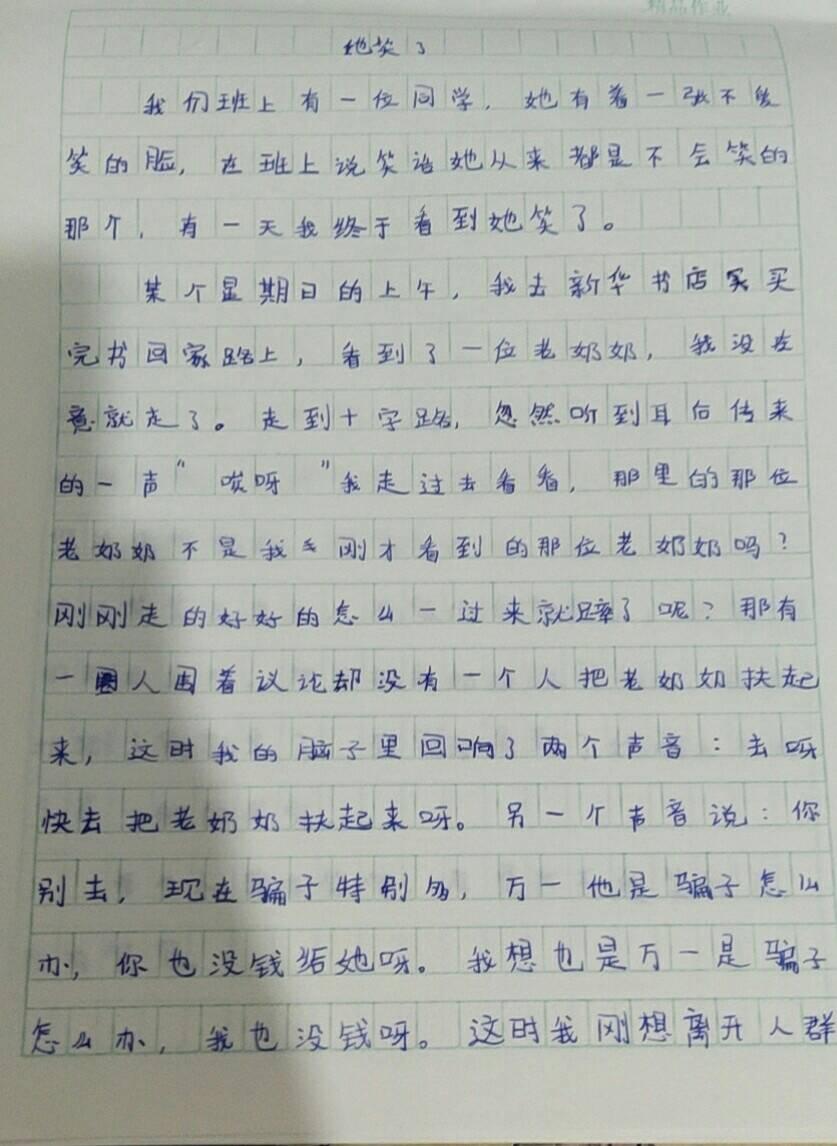 精品作业
她笑了
我们班上有一位同学,她有着一张不爱
笑的脸,在班上说笑话她从来都是不会笑的
那个,有一天我终于看到她笑了。
某个星期日的上午,我去新华书店买
完书回家路上,看到了一位老奶奶,我没在
意就走了。走到十字路,忽然听到耳后传来
的一声“哎呀”我走过去看看,那里的那位
老奶奶不是我刚才看到的那位老奶奶吗?
刚刚走的好好的怎么一过来就蹿了呢?那有
一圈人围着议论却没有一个人把老奶奶扶起
来,这时我的脑子里回响了两个声音:去呀
快去把老奶奶扶起来呀。另一个声音说:你
别去,现在骗子特别多,万一他是骗子怎么
办,你也没钱给她呀。我想也是万一是骗子
怎么办,我也没钱呀。这时我刚想离开人群